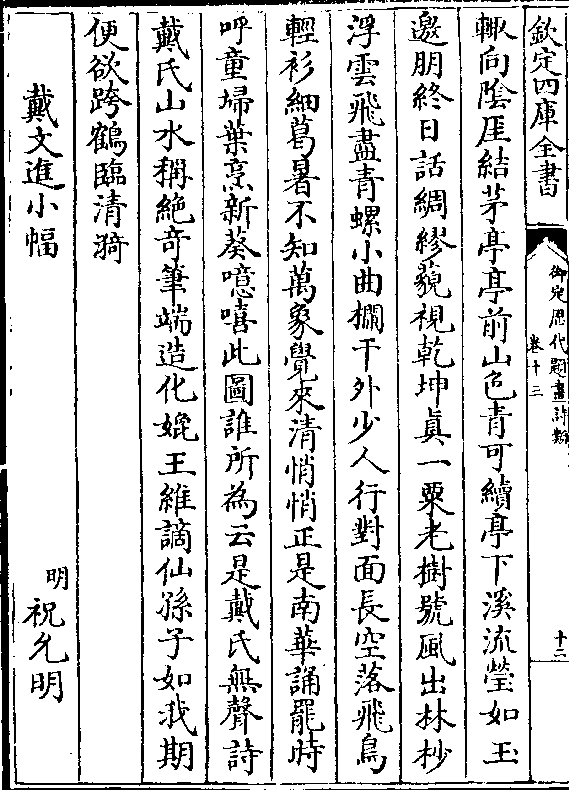 欽定四庫全書
御定歴代題畫詩類
卷十三
十二
輙向陰厓結茅亭亭前山色青可續亭下溪流瑩如玉
邀朋終日話綢繆藐視乾坤眞一粟老樹號風出林杪
浮雲飛盡青螺小曲欄干外少人行對面長空落飛鳥
輕衫細葛暑不知萬象覺來清悄悄正是南華誦罷時
呼童埽葉烹新葵噫嘻此圖誰所為云是戴氏無聲詩
戴氏山水稱絶竒筆端造化媲王維謫仙孫子如我期
便欲跨鶴臨清漪
戴文進小幅
明
祝允明